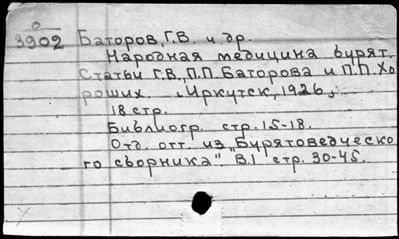 3902 Баторов, Г.В. и др.
Народная медицина бурят.
Статьи Г.В., П.П. Баторова и П.П. Хо
роших. Иркутск, 1926,
18 стр.
Библиогр. стр. 15-18.
Отд. отт. из „Бурятоведческо
го сборника". В.1 стр. 30-45.